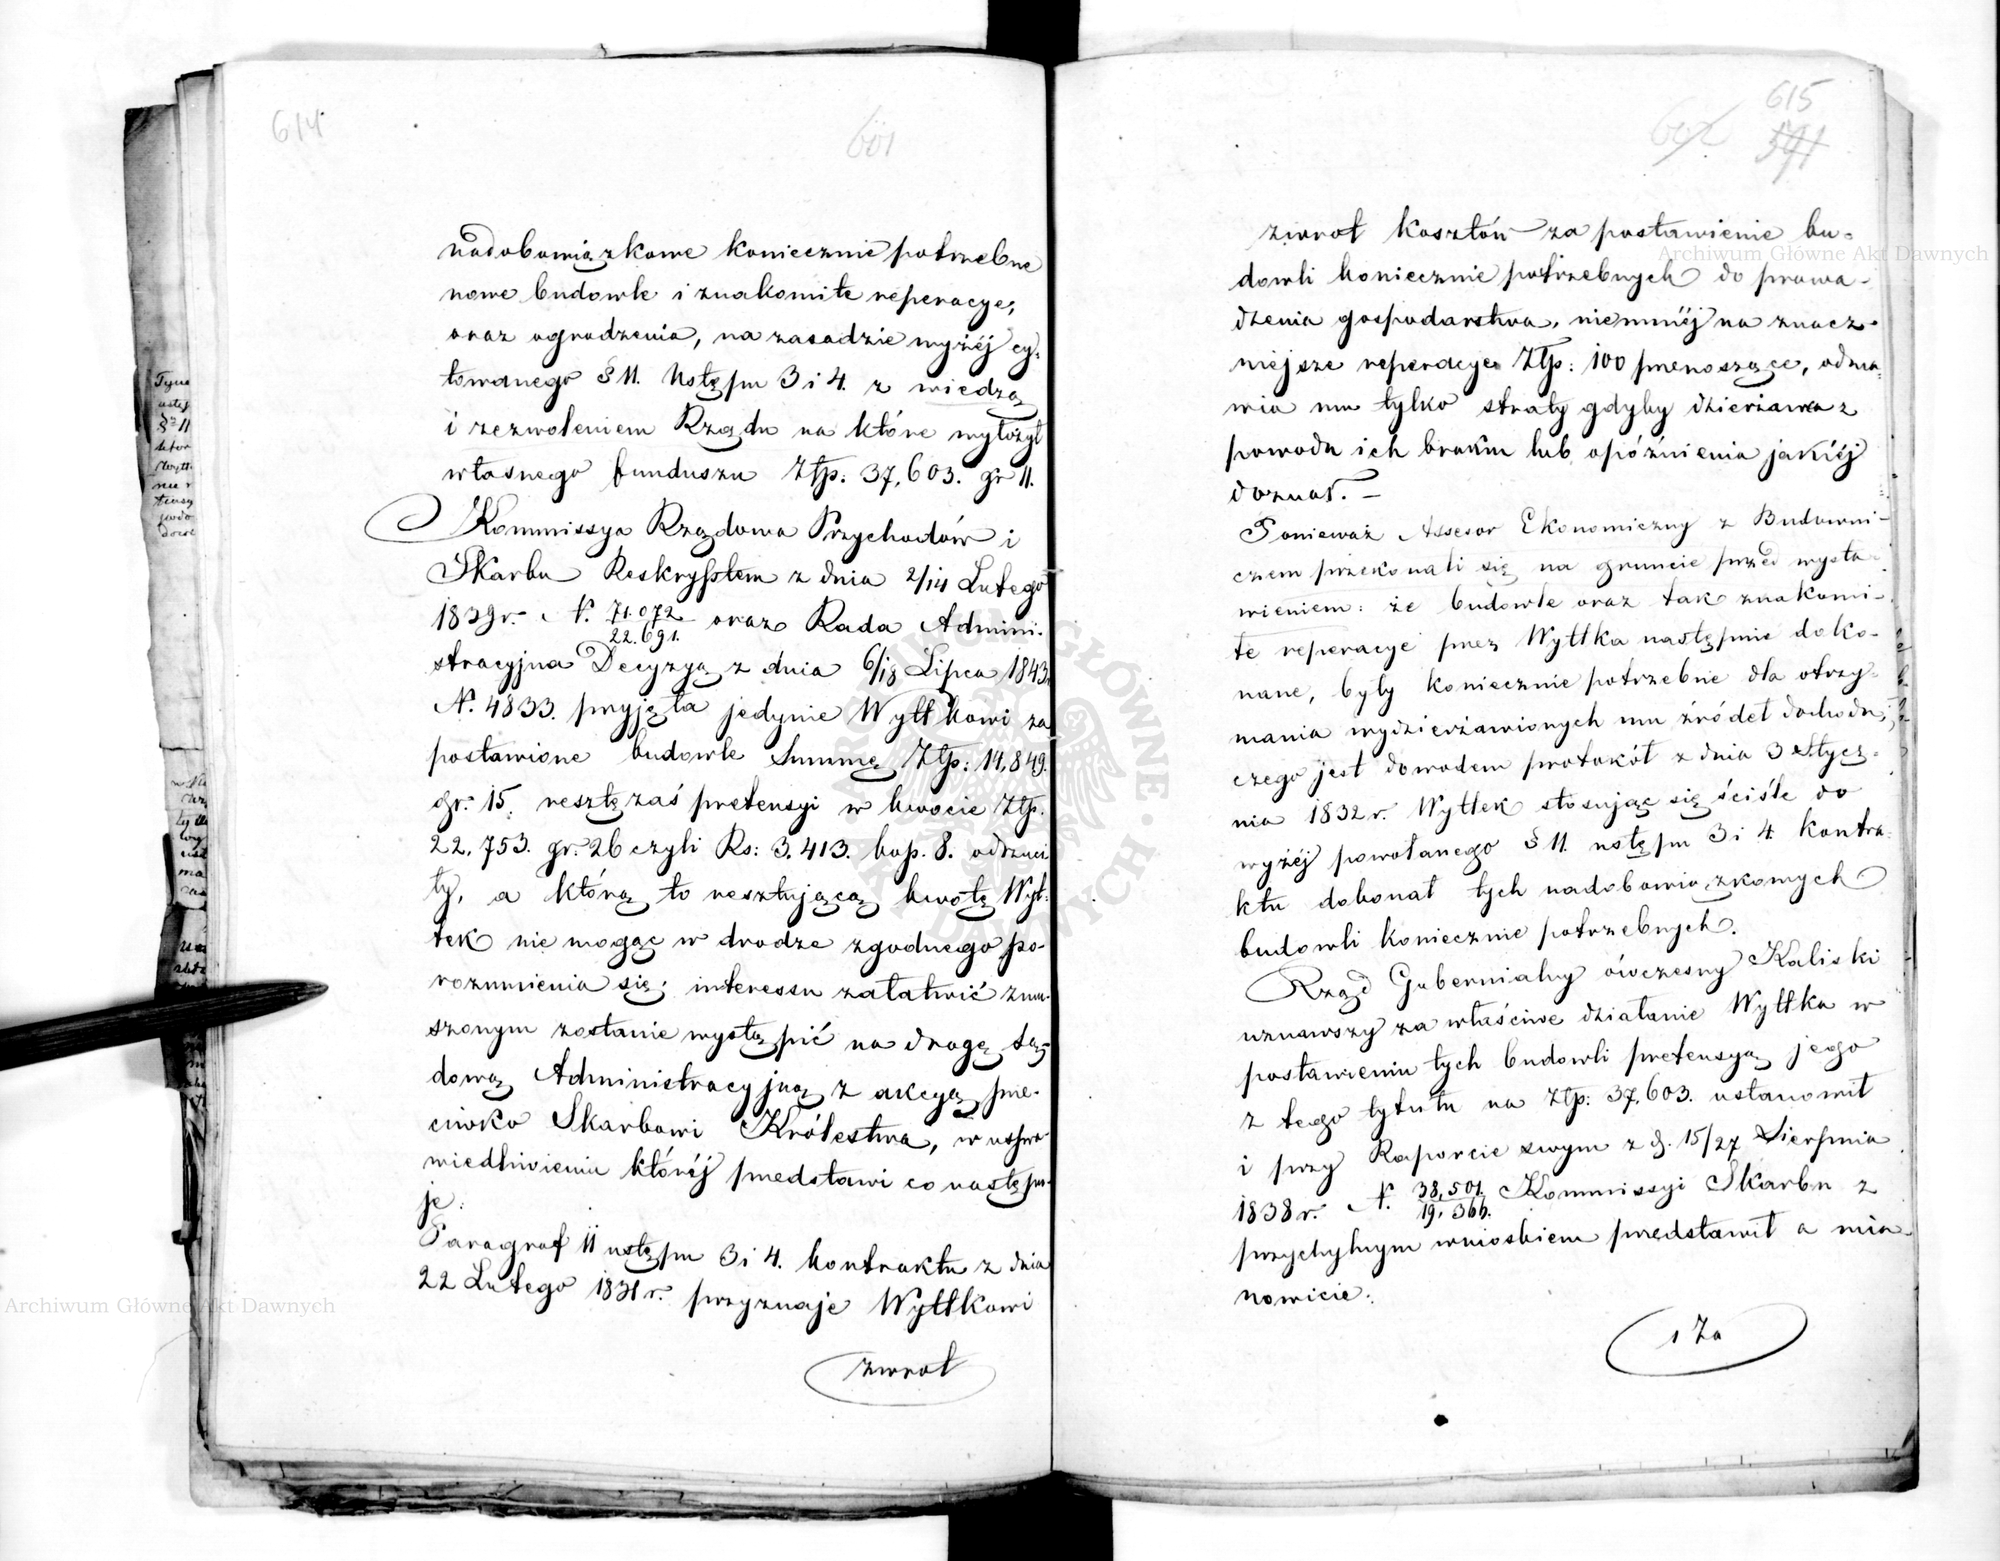 614
601
nadobowiązkowe koniecznie potrzebne
nowe budowle i znakomite reperacye,
oraz ogrodzenia, na zasadzie wyżéj cy-
towanego § 11. Ustępu 3 i 4. z wiedzą
i zezwoleniem Rządu na które wyłożył
własnego funduszu Złp: 37,603. gr 11.
Kommissya Rządowa Przychodów i
Skarbu Reskryptem z dnia 2/14 Lutego
1839 r. N. 71.072/22.691. oraz Rada Admini-
stracyjna Decyzyą z dnia 6/18 Lipca 1843 r.
N. 4833. przyjęła jedynie Wyttkowi za
postawione budowle Summę Złp: 14,849.
gr. 15, resztę zaś pretensyi w kwocie Złp.
22,753. gr. 26 czyli Rs: 3.413. kop. 8. odrzuci
ły, a którą to resztującą kwotę Wyt-
tek nie mogąc w drodze zgodnego po-
rozumienia się, interessu załatwić zmu-
szonym zostanie wystąpić na drogę Są-
dową Administracyjną z akcyą prze-
ciwko Skarbowi Królestwa, w uspra-
wiedliwieniu któréj przedstawi co następu-
je:
Paragraf 11 ustępu 3 i 4. kontraktu z dnia
22 Lutego 1831 r. przyznaje Wyttkowi
zwrot
615
602
591
zwrot kosztów za postawienie bu-
dowli koniecznie potrzebnych do prowa-
dzenia gospodarstwa, niemniéj na znacz-
niejsze reperacye Złp: 100 przenoszące, odma-
wia mu tylko straty gdyby dzierżawca z
powodu ich braku lub opóźnienia jakiéj
doznał. –
Ponieważ Assesor Ekonomiczny z Budowni-
czem przekonali się na gruncie przed wysta-
wieniem: że budowle oraz tak znakomi-
te reperacye przez Wyttka następnie doko-
nane, były koniecznie potrzebne dla otrzy-
mania wydzierżawionych mu źródeł dochodu,
czego jest dowodem protokół z dnia 3 Stycz-
nia 1832 r. Wyttek stosując się ściśle do
wyżéj powołanego § 11. ustępu 3 i 4 kontra-
ktu dokonał tych nadobowiązkowych
budowli koniecznie potrzebnych.
Rząd Gubernialny ówczesny Kaliski
uznawszy za właściwe działanie Wyttka w
postawieniu tych budowli pretensyą jego
z tego tytułu na Złp: 37,603. ustanowił
i przy Raporcie swym z d. 15/27 Sierpnia
1838 r. N. 38,501./19,366. Kommissyi Skarbu z
przychylnym wnioskiem przedstawił a mia-
nowicie:
1 Za
Archiwum Główne Akt Dawnych
Archiwum Główne Akt Dawnych
ARCHIWUM GŁÓWNE AKT DAWNYCH